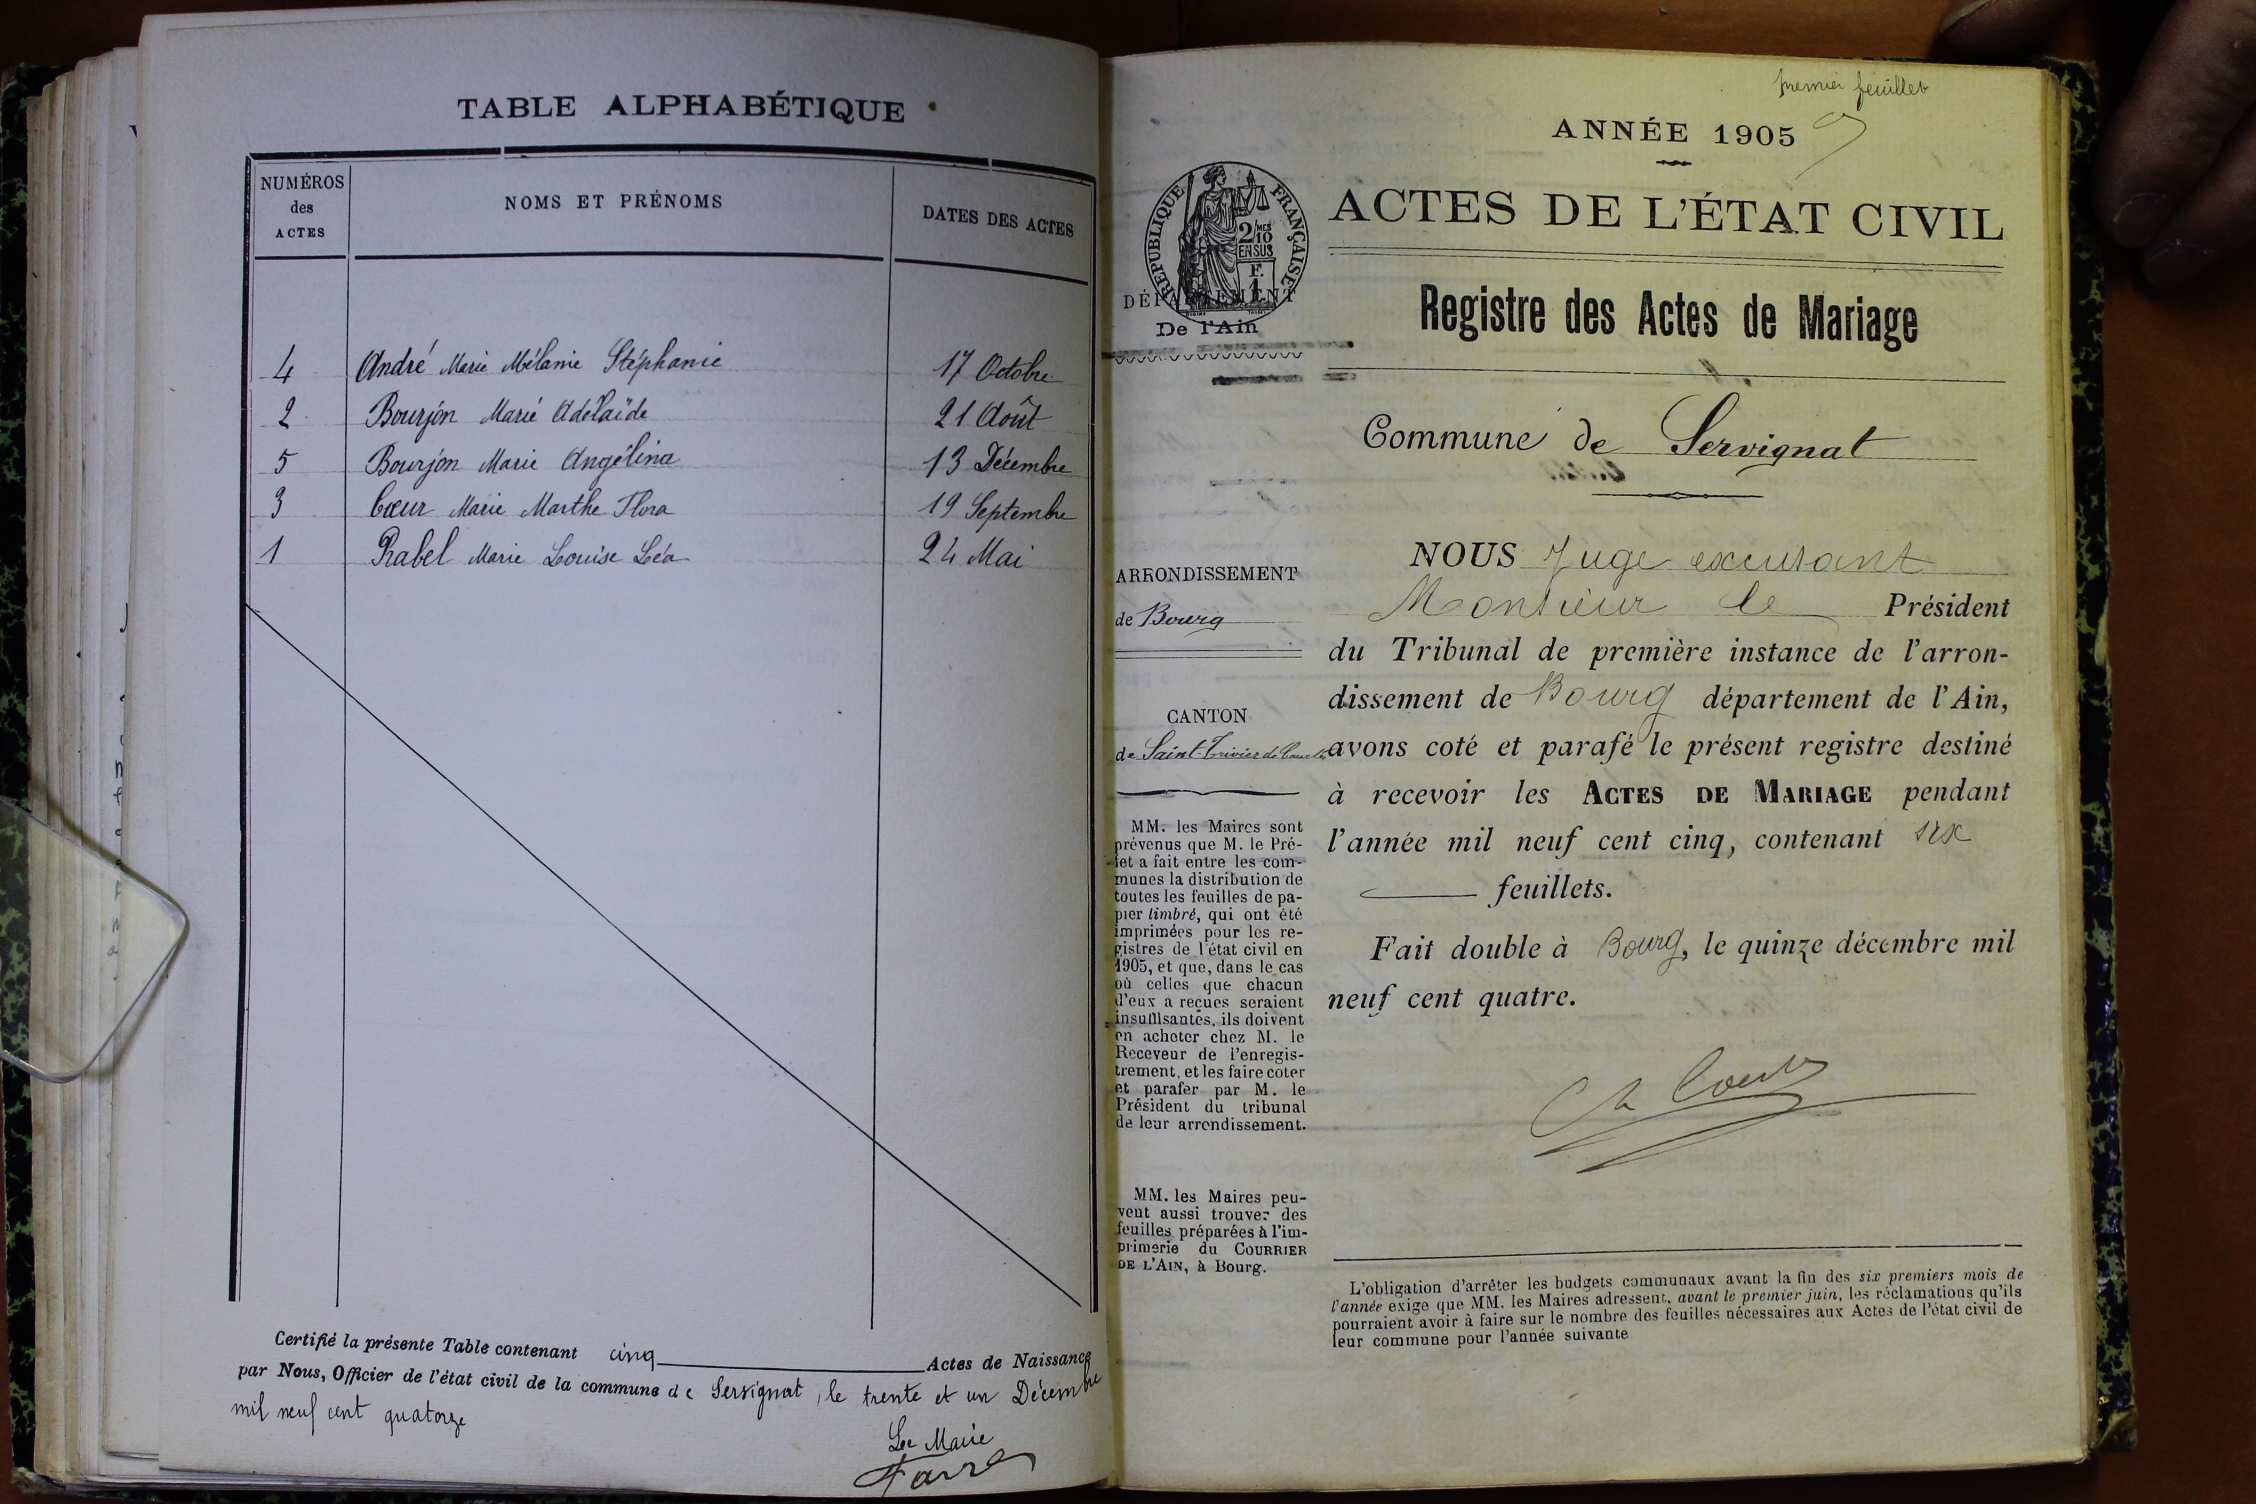 TABLE ALPHABÉTIQUE
NUMÉROS
des
ACTES
NOMS ET PRÉNOMS
DATES DES ACTES
4 André Marie Mélanie Stéphanie 17 Octobre
2 Bourjon Marie Adélaïde 21 Août
5 Bourjon Marie Angélina 13 Décembre
3 Cœur Marie Marthe Flora 19 Septembre
1 Rabel Marie Louise Léa 24 Mai
Certifié la présente Table contenant cinq Actes de Naissance
par Nous, Officier de l'état civil de la commune de Servignat, le trente et un Décembre
mil neuf cent quatorze
Le Maire
premier feuillet
ANNÉE 1905
RÉPUBLIQUE FRANÇAISE
2/10 MES
EN SUS
F.
1
DÉPARTEMENT
De l'Ain
ACTES DE L'ÉTAT CIVIL
Registre des Actes de Mariage
Commune de Servignat
ARRONDISSEMENT
de Bourg
CANTON
de Saint-Trivier de Courtes
MM. les Maires sont
prévenus que M. le Pré-
fet a fait entre les com-
munes la distribution de
toutes les feuilles de pa-
pier timbré, qui ont été
imprimées pour les re-
gistres de l'état civil en
1905, et que, dans le cas
où celles que chacun
d'eux a reçues seraient
insuffisantes, ils doivent
en acheter chez M. le
Receveur de l'enregis-
trement, et les faire coter
et parafer par M. le
Président du tribunal
de leur arrondissement.
MM. les Maires peu-
vent aussi trouver des
feuilles préparées à l'im-
primerie du COURRIER
DE L'AIN, à Bourg.
NOUS Juge excusant
Monsieur le Président
du Tribunal de première instance de l'arron-
dissement de Bourg département de l'Ain,
avons coté et parafé le présent registre destiné
à recevoir les ACTES DE MARIAGE pendant
l'année mil neuf cent cinq, contenant six
feuillets.
Fait double à Bourg, le quinze décembre mil
neuf cent quatre.
L'obligation d'arrêter les budgets communaux avant la fin des six premiers mois de
l'année exige que MM. les Maires adressent, avant le premier juin, les réclamations qu'ils
pourraient avoir à faire sur le nombre des feuilles nécessaires aux Actes de l'état civil de
leur commune pour l'année suivante